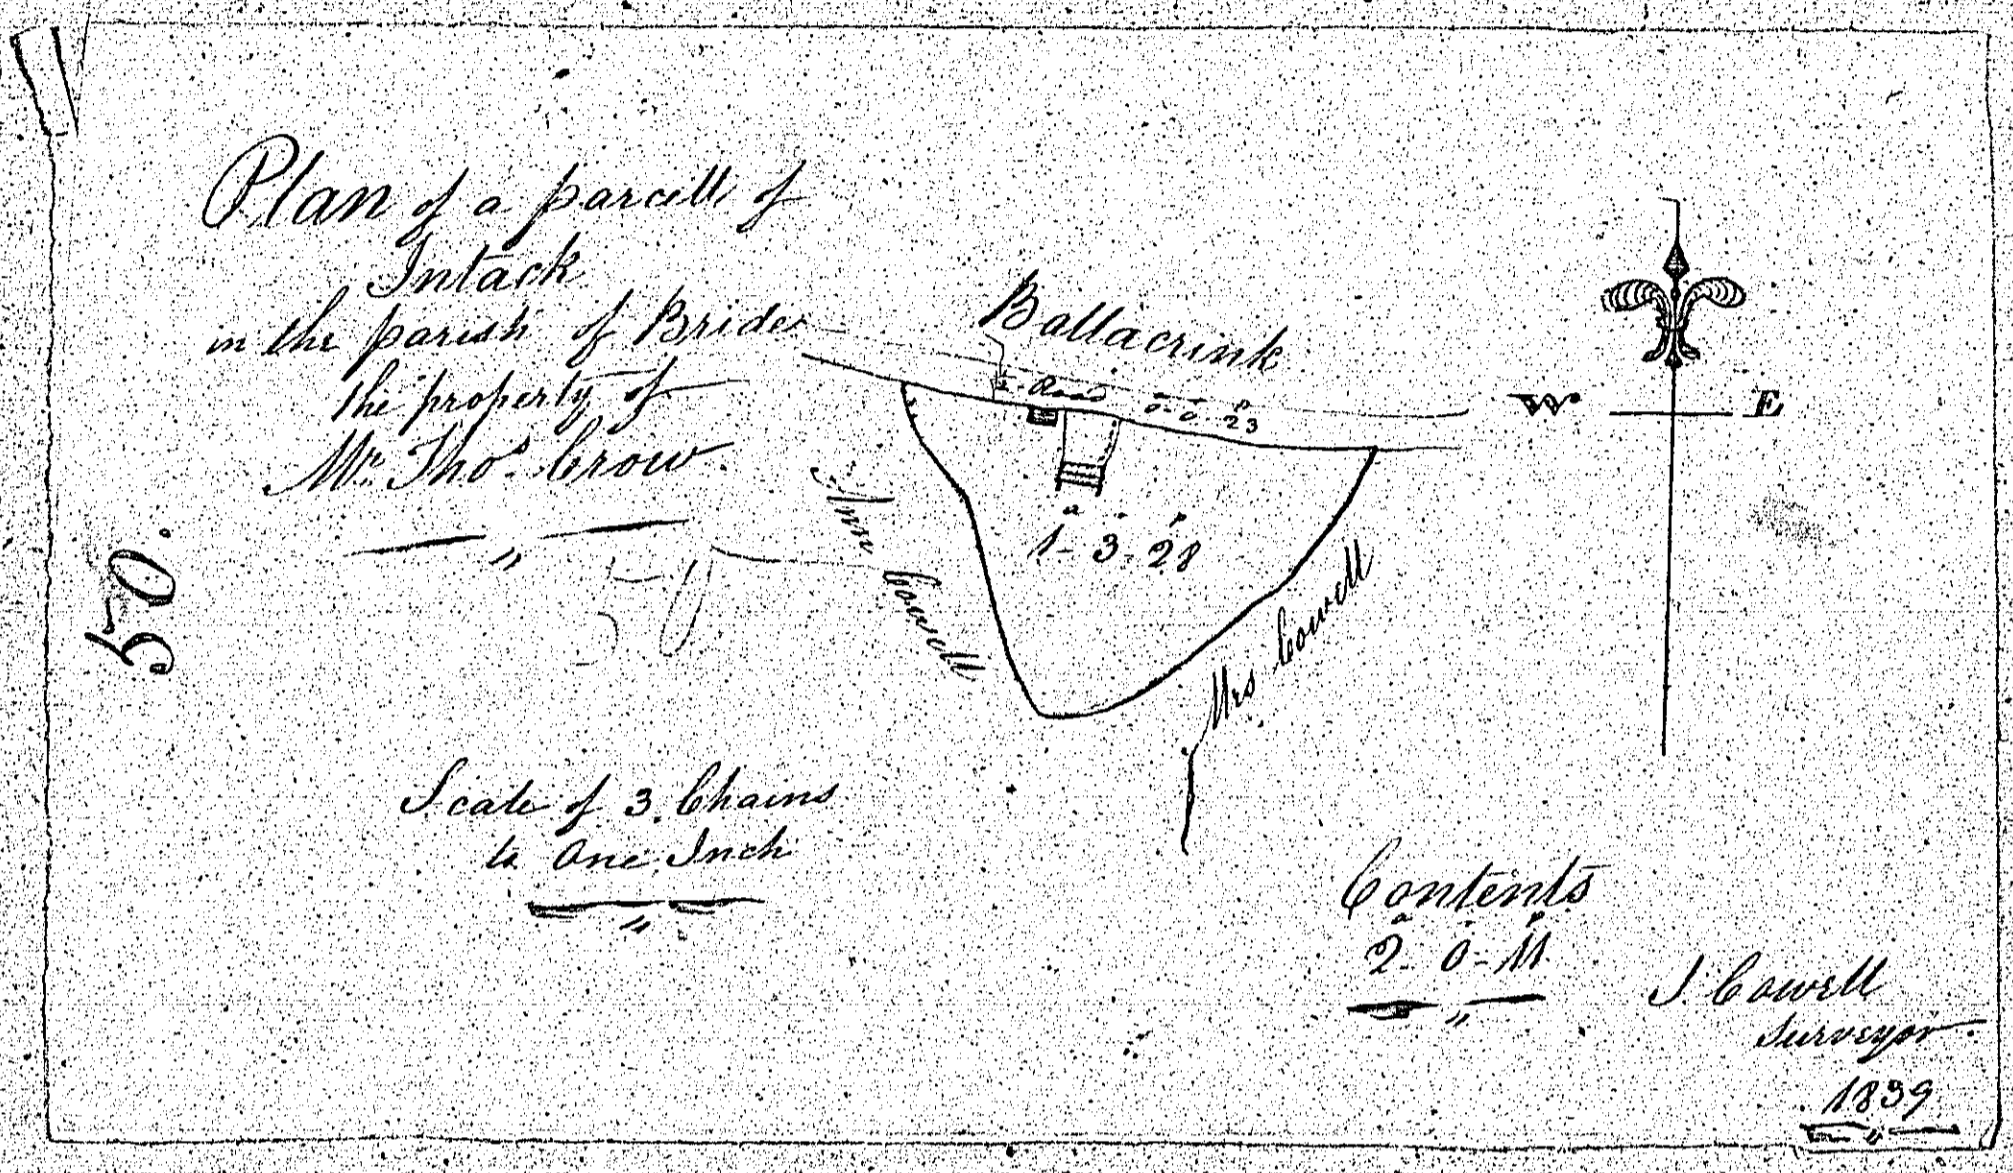 Plan of a parcell of
Intack
in the parish of Bride
the property of
Mr. Thos. Crow.
50.
50
Ballacrink
½ Road 0-0-23
a p
1-3-28
Cowell
Mrs Cowell
W E
Scale of 3 Chains
to One Inch
Contents
a p
2-0-11
J. Cowell
Surveyor
1839